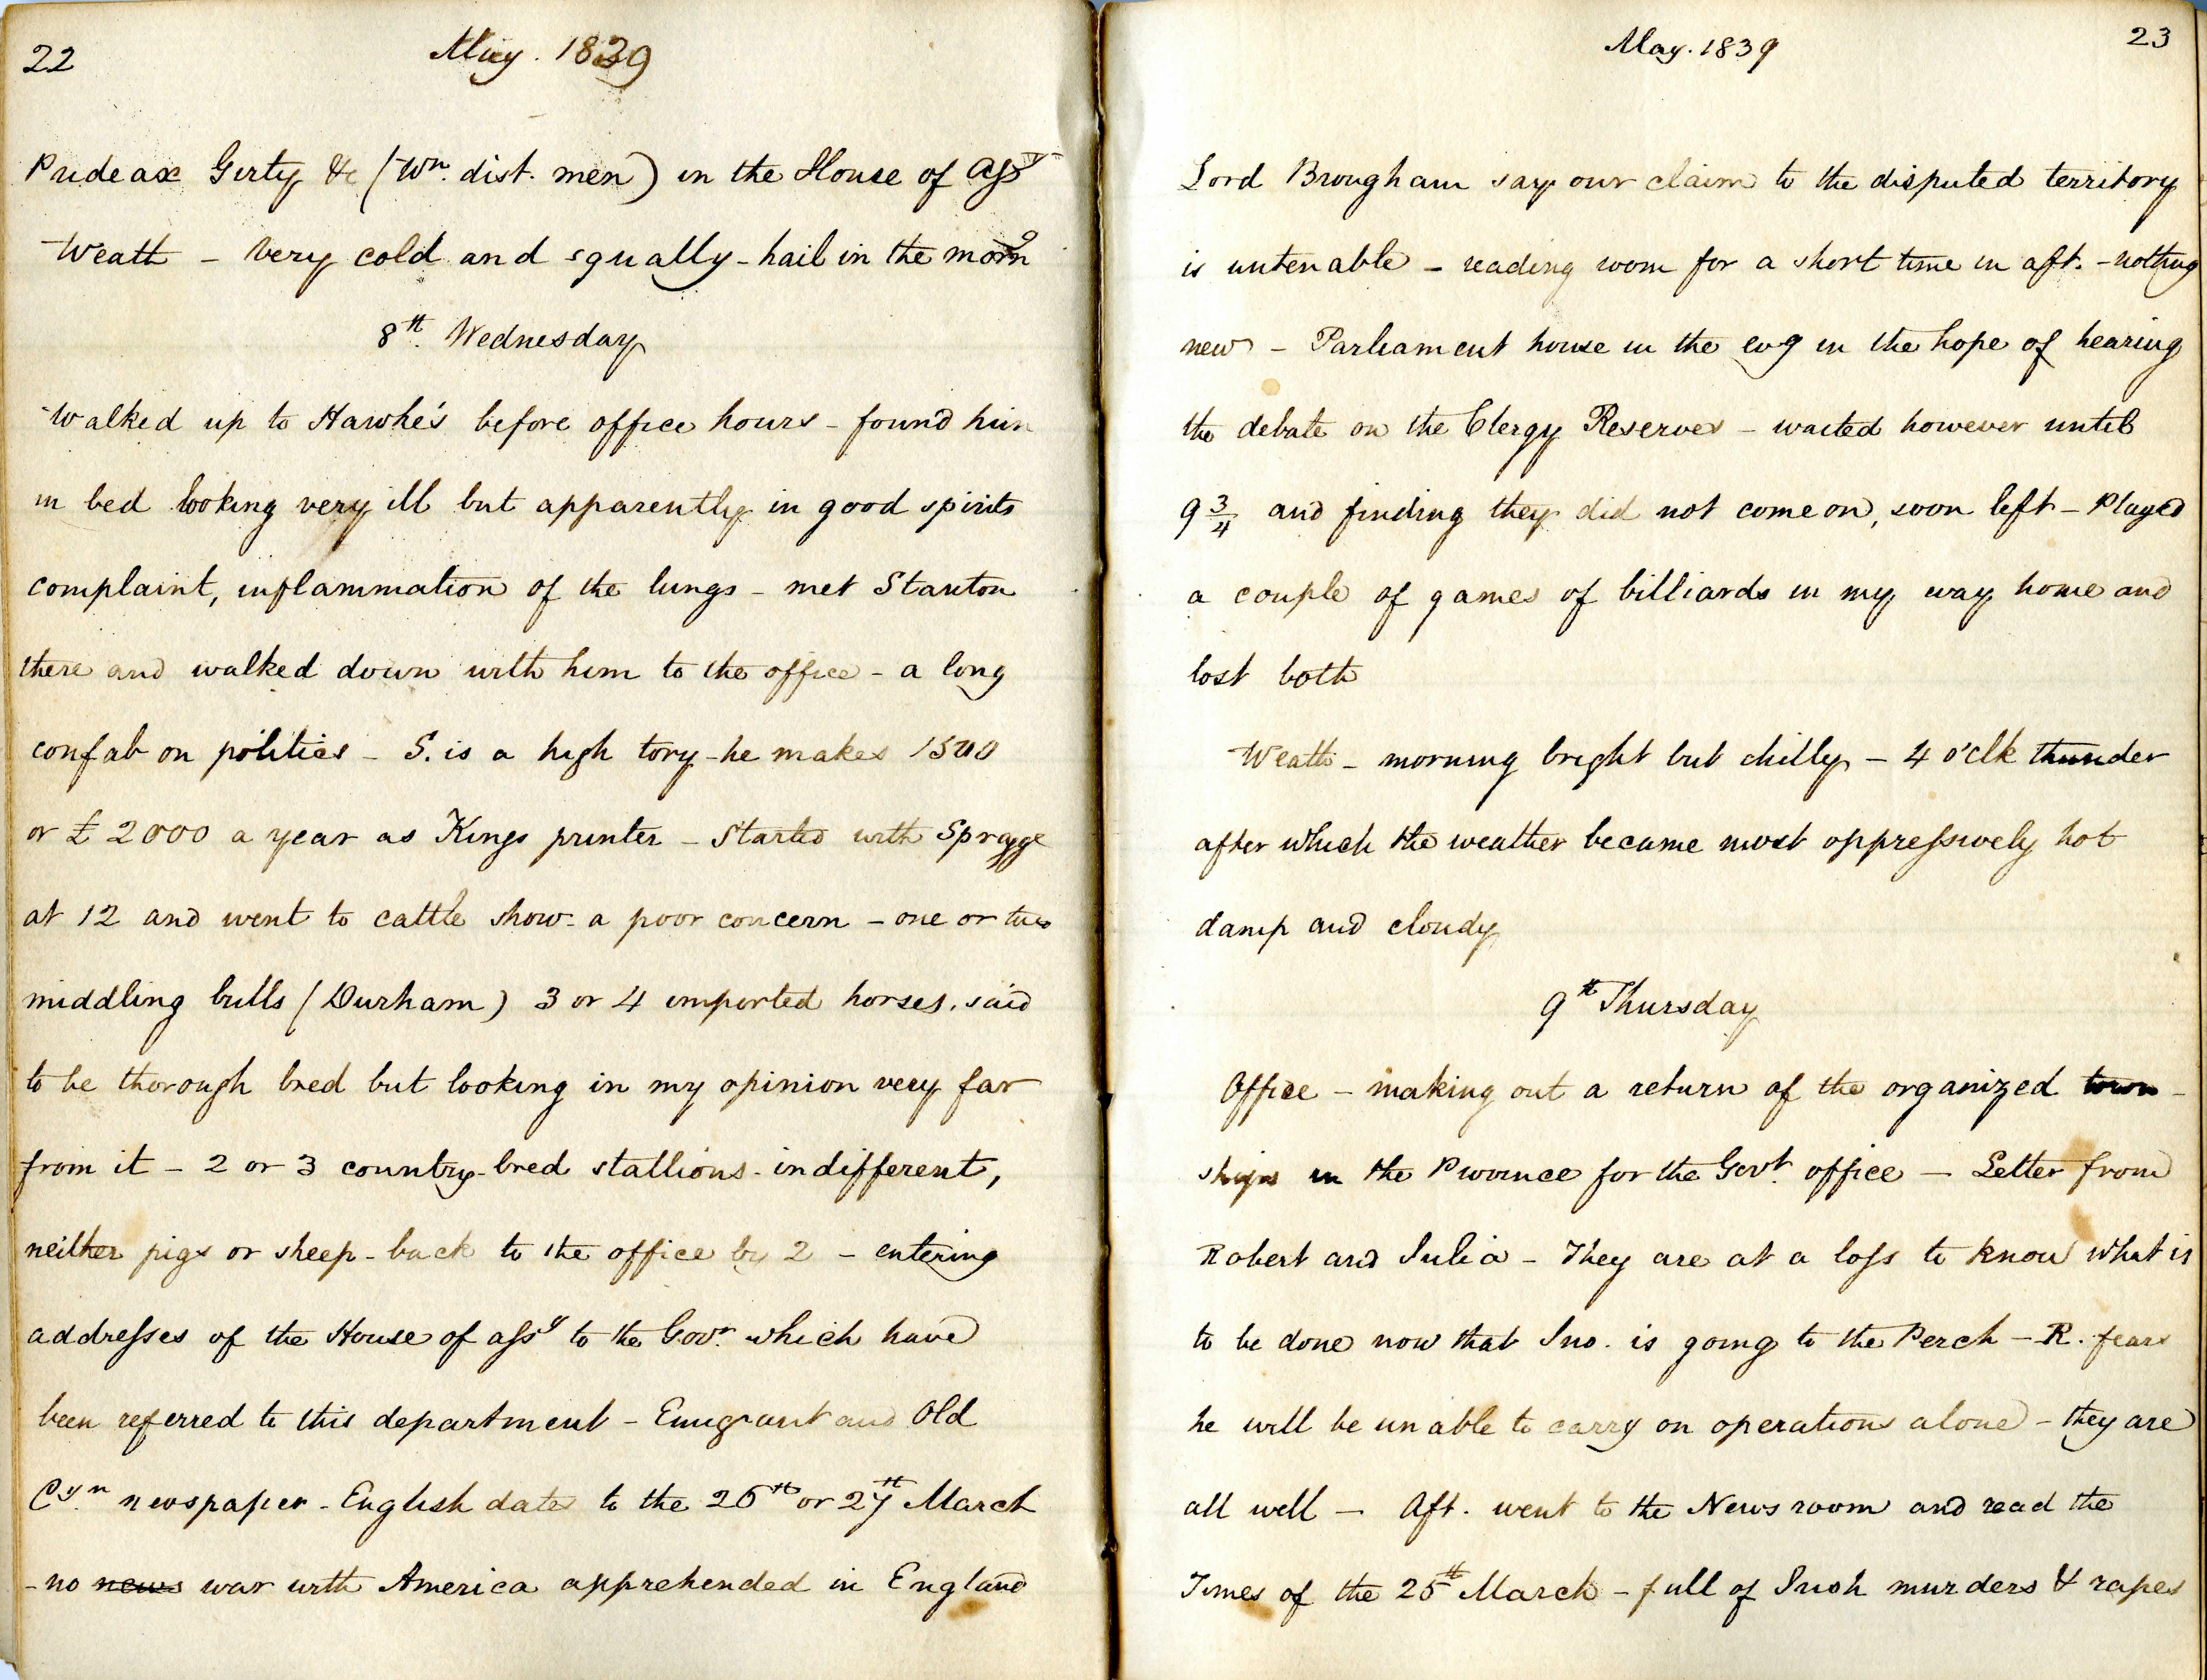 22
May. 1839
Prideax Girty &c (Wn. dist. men) in the House of Assy
Weath - Very cold and squally - hail in the morng
8th. Wednesday
Walked up to Hawke's before office hours - found him
in bed looking very ill but apparently in good spirits
complaint, inflammation of the lungs - met Stanton
there and walked down with him to the office - a long
confab on politics - S. is a high tory - he makes 1500
or £2000 a year as Kings printer - Started with Spragge
at 12 and went to cattle show - a poor concern - one or two
middling bulls (Durham) 3 or 4 imported horses, said
to be thorough bred but looking in my opinion very far
from it - 2 or 3 country-bred stallions - indifferent,
neither pigs or sheep - back to the office by 2 - entering
addresses of the House of Assy to the Govr. which have
been referred to this department - Emigrant and Old
Cyn. newspaper - English dates to the 26th or 27th March
- no news war with America apprehended in England
May. 1839
23
Lord Brougham says our claim to the disputed territory
is untenable - reading room for a short time in aft. - nothing
new - Parliament house in the evg in the hope of hearing
the debate on the Clergy Reserves - waited however until
9 3/4 and finding they did not come on, soon left - Played
a couple of games of billiards in my way home and
lost both
Weath - morning bright but chilly - 4 o'clk thunder
after which the weather became most oppressively hot
damp and cloudy
9th Thursday
Office - making out a return of the organized town-
ships in the Province for the Govt. office - Letter from
Robert and Julia - They are at a loss to know what is
to be done now that Jno. is going to the Perch - R. fears
he will be unable to carry on operations alone - they are
all well - Aft. went to the News room and read the
Times of the 25th March - full of Irish murders & rapes